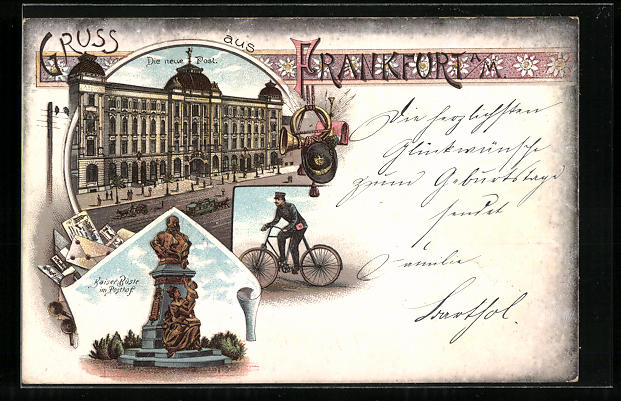 GRUSS aus FRANKFURT A/M.
Die neue Post.
Kaiser Büste
im Posthof.
Die herzlichsten
Glückwünsche
zum Geburtstage
sendet
Familie
Barthol.